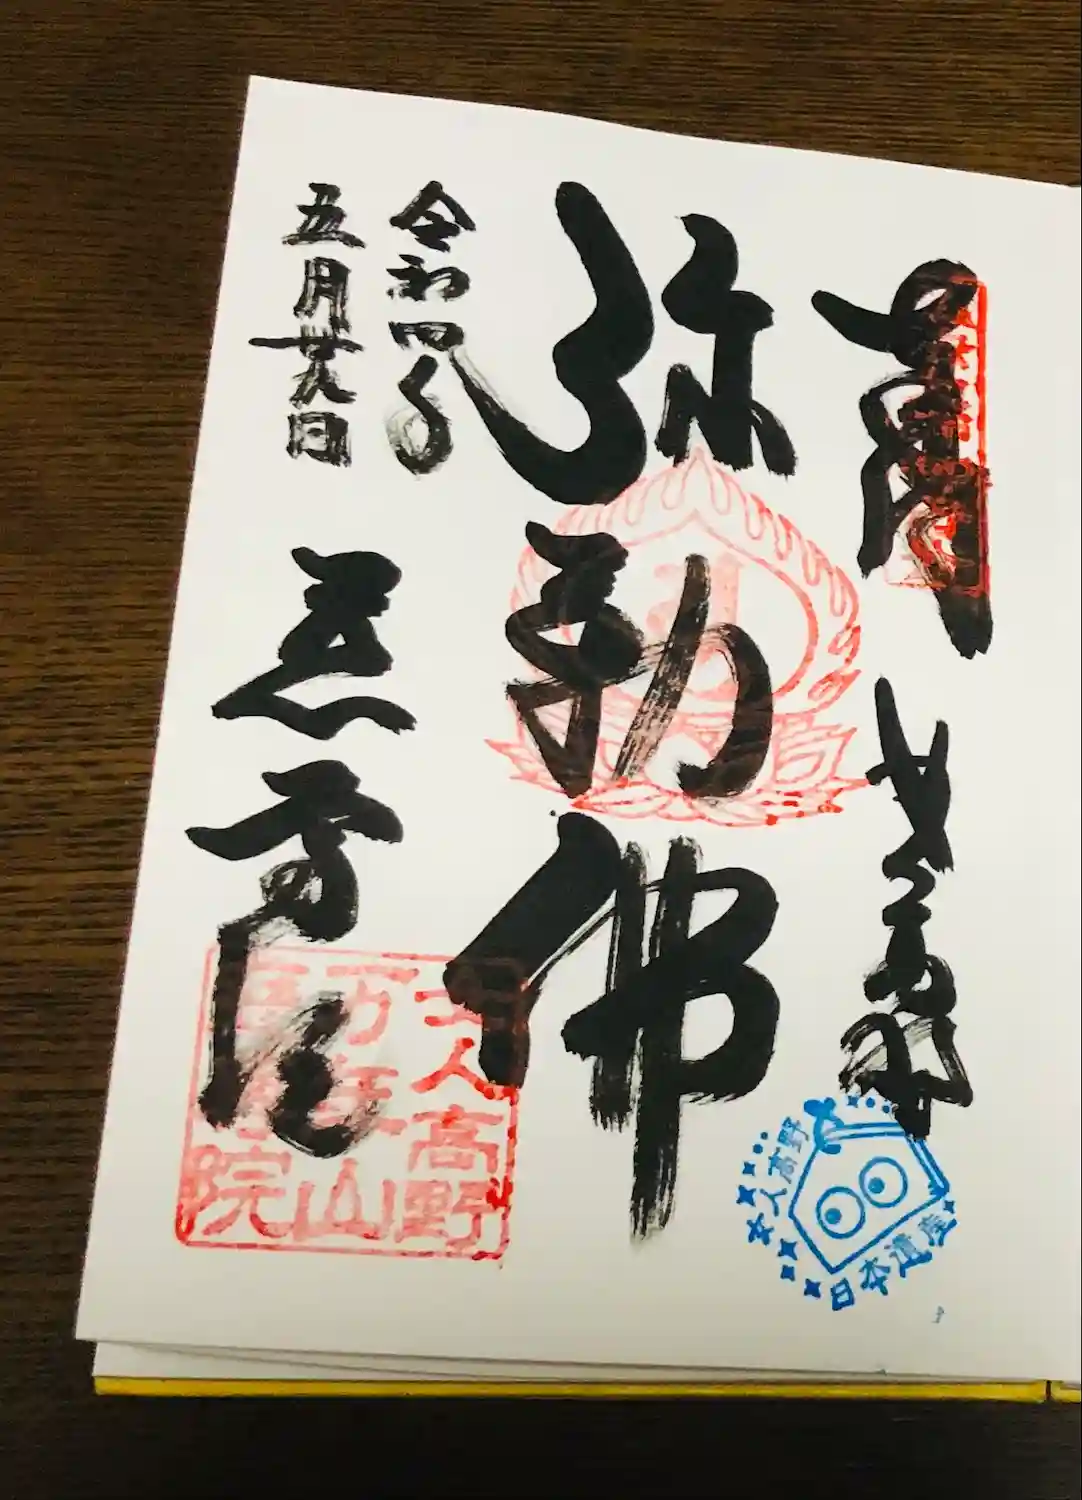 奉拝
女人高野
弥勒佛
令和四年
五月廿九日
慈尊院
女人高野
万年山
慈尊院
女人高野
日本遺産